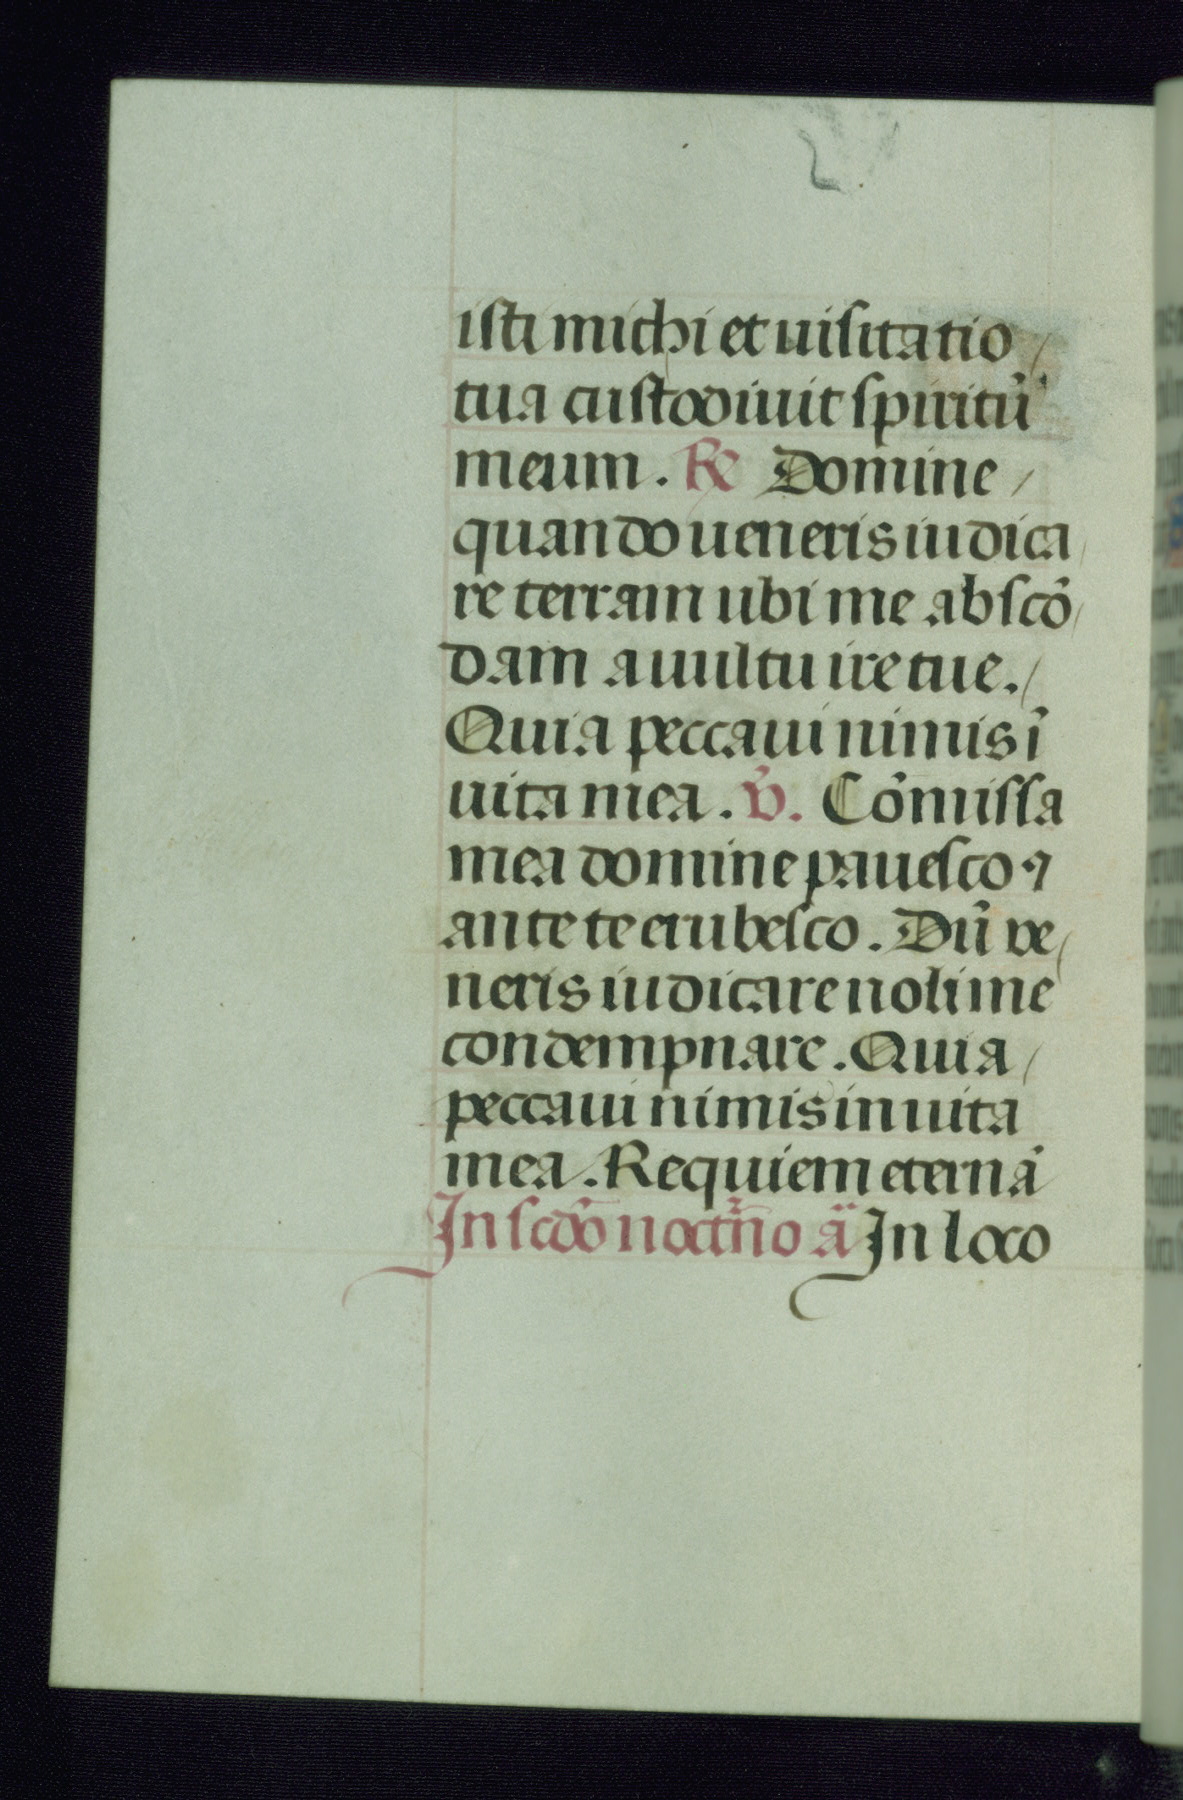 isti michi et uisitatio
tua custodiuit spiritū
meum. R̃ Domine
quando ueneris iudica
re terram ubi me abscō
dam a uultu ire tue.
Quia peccaui nimis ī
uita mea. v̄. Cōmissa
mea domine pauesco ⁊
ante te erubesco. Dū ve
neris iudicare noli me
condempnare. Quia
peccaui nimis in uita
mea. Requiem eternā
In scdō noctr̄no ā In loco